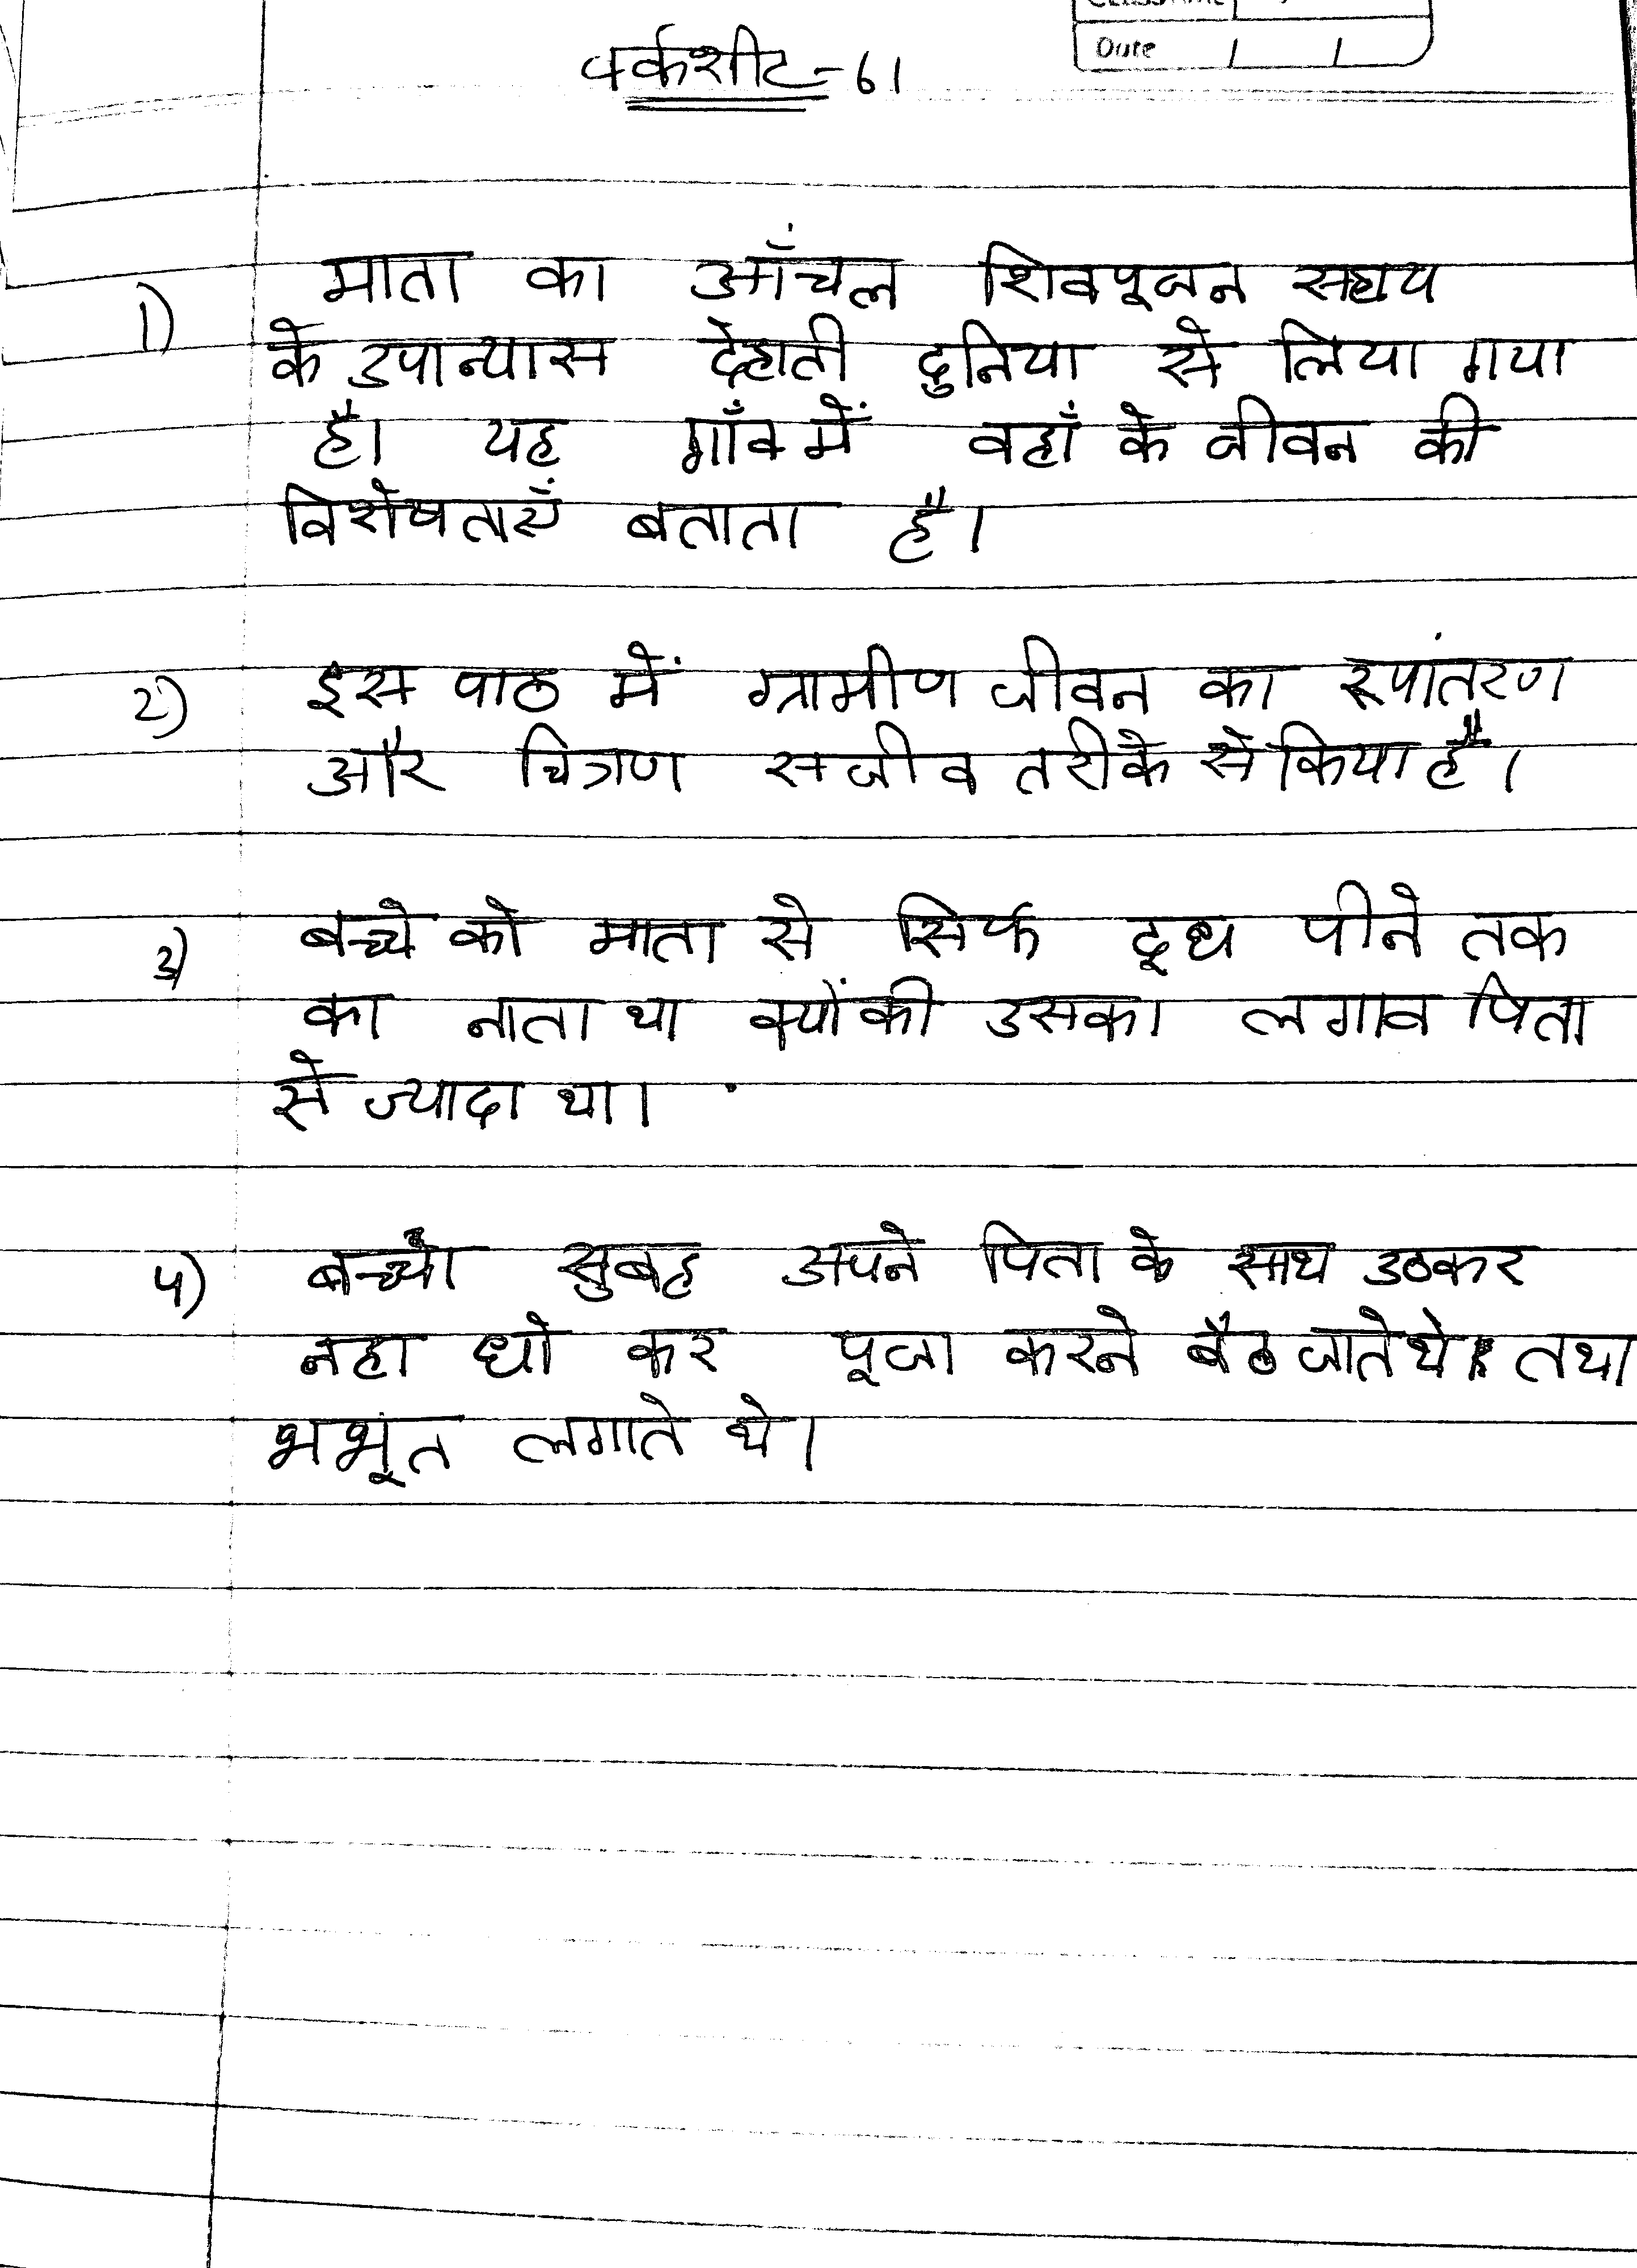 Date / /
वर्कशीट-61
1) माता का आँचल शिवपूजन सहाय
के उपान्यास देहाती दुनिया से लिया गया
है। यह गाँव में वहाँ के जीवन की
विशेषताएँ बताता है।
2) इस पाठ में ग्रामीण जीवन का रूपांतरण
और चित्रण सजीव तरीके से किया है।
3) बच्चे को माता से सिर्फ दूध पीने तक
का नाता था क्योंकी उसका लगाव पिता
से ज्यादा था।
4) बच्चो सुबह अपने पिता के साथ उठकर
नहा धो कर पूजा करने बैठ जाते थे। तथा
भभूत लगाते थे।